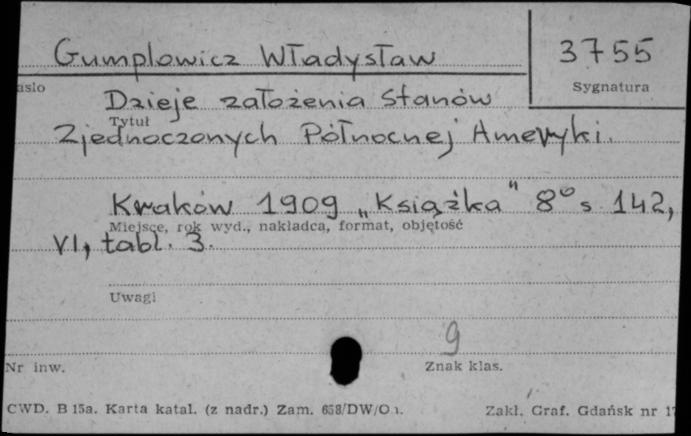 Gumplowicz Władysław
3755
asło
Sygnatura
Dzieje założenia Stanów
Tytuł
Zjednoczonych Północnej Ameryki.
Kraków 1909 „Książka" 8° s. 142,
Miejsce, rok wyd., nakładca, format, objętość
VI, tabl. 3.
Uwagi
9
Nr inw.
Znak klas.
CWD. B 15a. Karta katal. (z nadr.) Zam. 658/DW/O
Zakł. Graf. Gdańsk nr 1